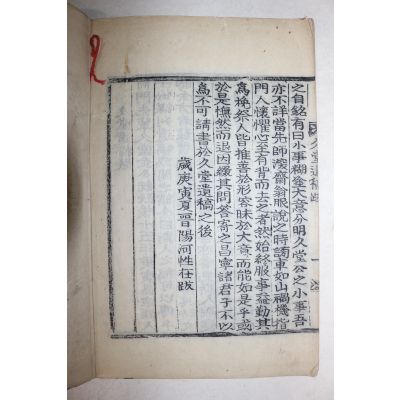 之自銘有曰小事糊塗大意分明久堂公之小事吾
亦不詳當先師深齋翁眼說之時謗車如山禍機指
門人懷懼心至有背而去之者然始終服事益勤其
爲挽祭人皆推善於形容昧於大意而能如是乎或
於是憮然而退因綴其問答寄之昌寧諸君子不以
爲不可請書於久堂遺稿之後
歲庚寅夏晋陽河性在跋
久堂遺稿跋
一